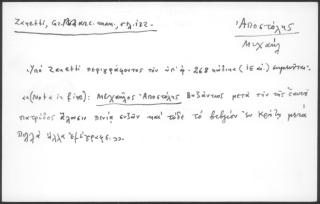 Zanetti, Gr. Μ. Marc. man., σελ. 122.
Ἀποστόλης
Μιχαήλ
Ὑπὸ Zanetti περιγράφοντος τὸν ὑπ' ἀρ. 268 κώδικα (15 αἰ.) σημειοῦται:
«(Nota in fine): Μιχαῆλος Ἀποστόλης Βυζάντιος μετὰ τὴν τῆς ἑαυτοῦ
πατρίδος ἅλωσιν πενίᾳ συζῶν καὶ τόδε τὸ βιβλίον ἐν Κρήτῃ μετὰ
πολλὰ ἄλλα ἐξέγραψε.»